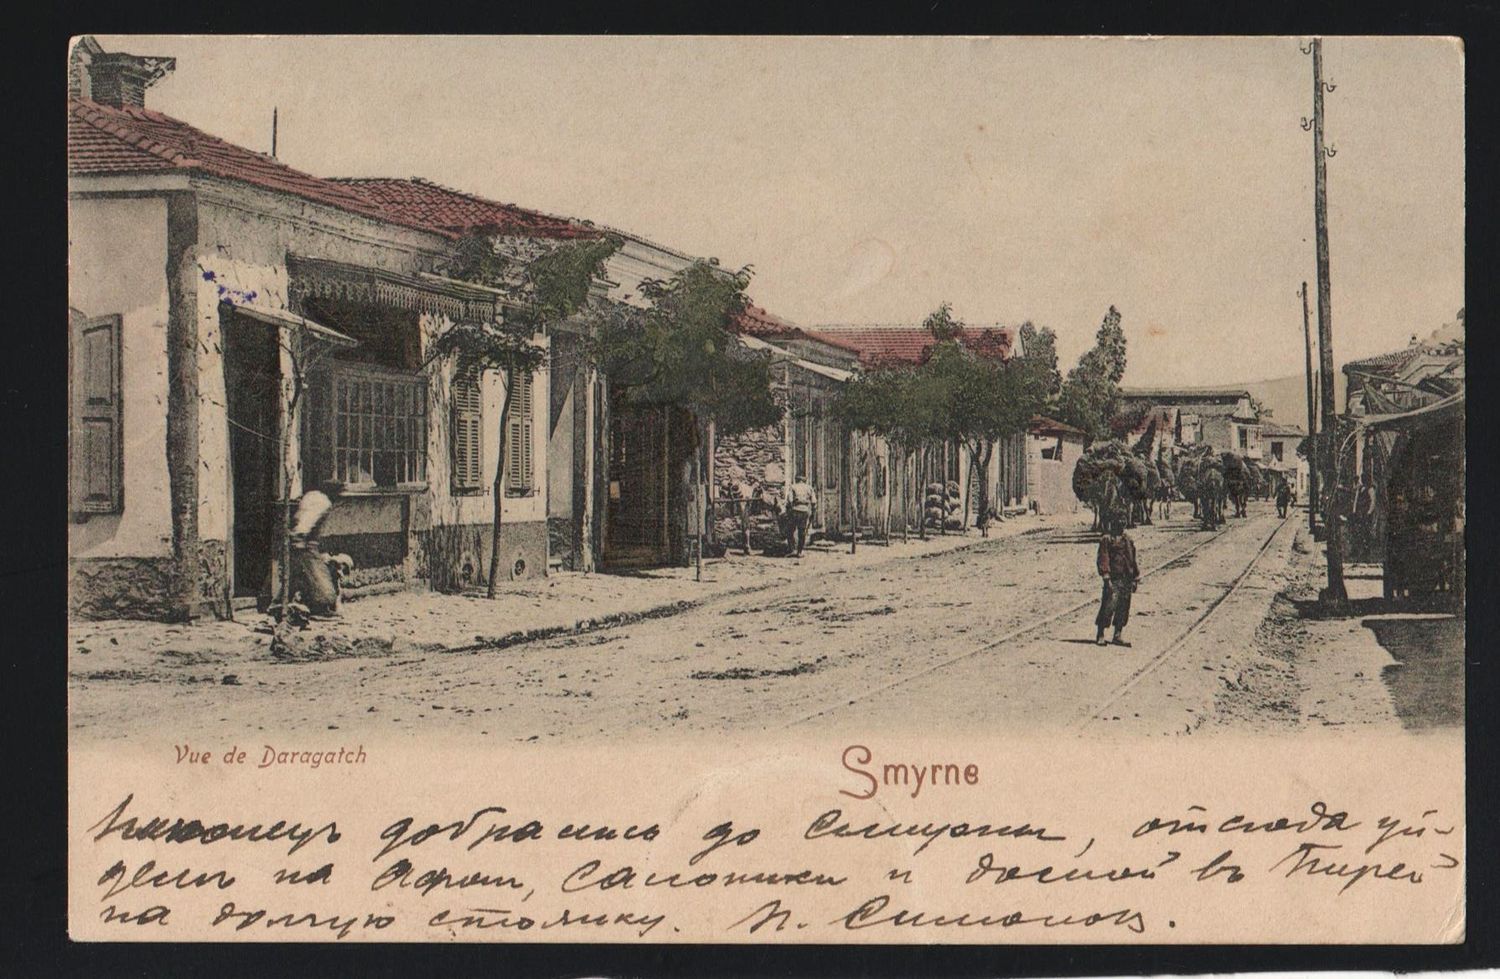 Vue de Daragatch
Smyrne
Наконецъ добрались до Смирны, отсюда уй-
демъ на Афон, Салоники и домой въ Пирей
на долгую стоянку. Н. Симоновъ.